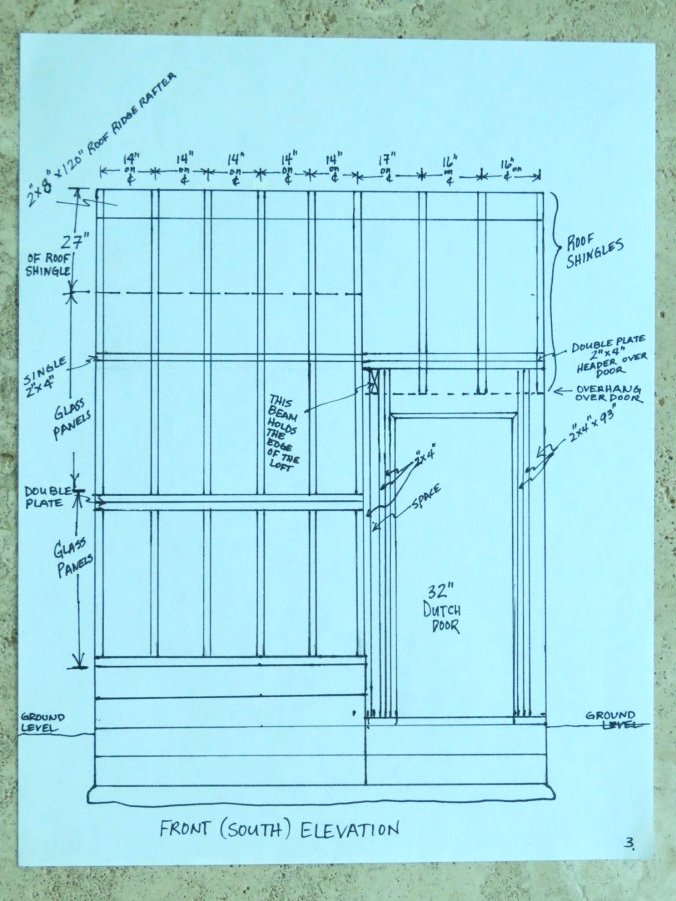 2"x8"x120" ROOF RIDGE RAFTER
14"
on
¢
14"
on
¢
14"
on
¢
14"
on
¢
14"
on
¢
17"
on
¢
16"
on
¢
16"
on
¢
27"
OF ROOF
SHINGLE
ROOF
SHINGLES
SINGLE
2"x4"
GLASS
PANELS
DOUBLE PLATE
2"x4"
HEADER OVER
DOOR
OVERHANG
OVER DOOR
THIS
BEAM
HOLDS
THE
EDGE
OF THE
LOFT
2"x4"
2"x4"x93"
SPACE
DOUBLE
PLATE
GLASS
PANELS
32"
DUTCH
DOOR
GROUND
LEVEL
GROUND
LEVEL
FRONT (SOUTH) ELEVATION
3.